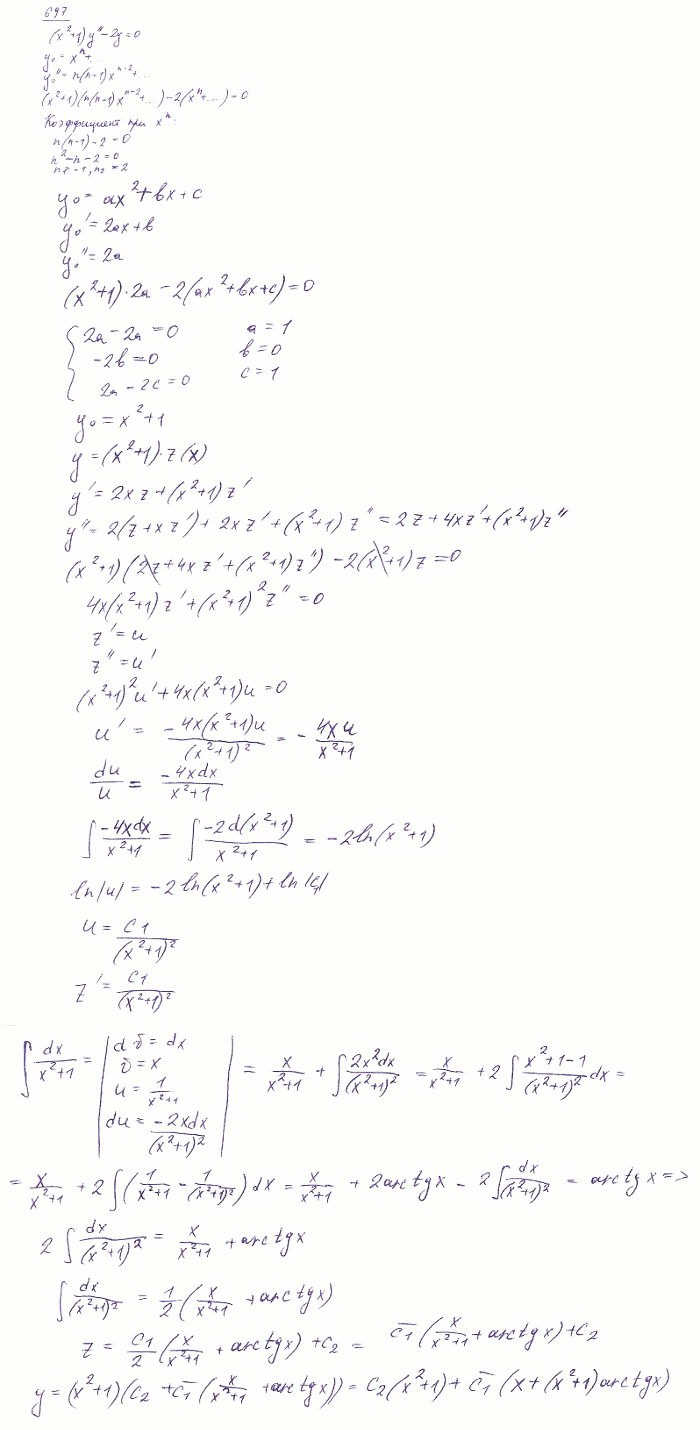 697
(x²+1)y''-2y=0
y₀ = xⁿ+..
y₀''= n(n-1)xⁿ⁻²+...
(x²+1)(n(n-1)xⁿ⁻²+...)-2(xⁿ+...)=0
Коэффициент при xⁿ:
n(n-1)-2=0
n²-n-2=0
n₁=-1, n₂=2
y₀= ax²+bx+c
y₀'=2ax+b
y₀''=2a
(x²+1)·2a-2(ax²+bx+c)=0
2a-2a=0 a=1
-2b=0 b=0
2a-2c=0 c=1
y₀=x²+1
y=(x²+1)·z(x)
y'=2xz+(x²+1)z'
y''=2(z+xz')+2xz'+(x²+1)z''=2z+4xz'+(x²+1)z''
(x²+1)(2z+4xz'+(x²+1)z'')-2(x²+1)z=0
4x(x²+1)z'+(x²+1)²z''=0
z'=u
z''=u'
(x²+1)²u'+4x(x²+1)u=0
u' = -4x(x²+1)u/(x²+1)² = -4xu/(x²+1)
du/u = -4xdx/(x²+1)
∫-4xdx/(x²+1) = ∫-2d(x²+1)/(x²+1) = -2ln(x²+1)
ln|u|=-2ln(x²+1)+ln|c₁|
u= c1/(x²+1)²
z'= c1/(x²+1)²
∫dx/(x²+1) = | dv=dx
v=x
u=1/(x²+1)
du=-2xdx/(x²+1)² | = x/(x²+1) + ∫2x²dx/(x²+1)² = x/(x²+1) +2∫(x²+1-1)/(x²+1)² dx=
= x/(x²+1) +2∫(1/(x²+1) - 1/(x²+1)²)dx = x/(x²+1) +2arctgx - 2∫dx/(x²+1)² = arctgx =>
2∫dx/(x²+1)² = x/(x²+1) +arctgx
∫dx/(x²+1)² = 1/2(x/(x²+1) +arctgx)
z = c1/2(x/(x²+1) +arctgx)+c₂ = c̄1(x/(x²+1)+arctgx)+c₂
y=(x²+1)(c₂+c̄1(x/(x²+1) +arctgx))=c₂(x²+1)+c̄1(x+(x²+1)arctgx)